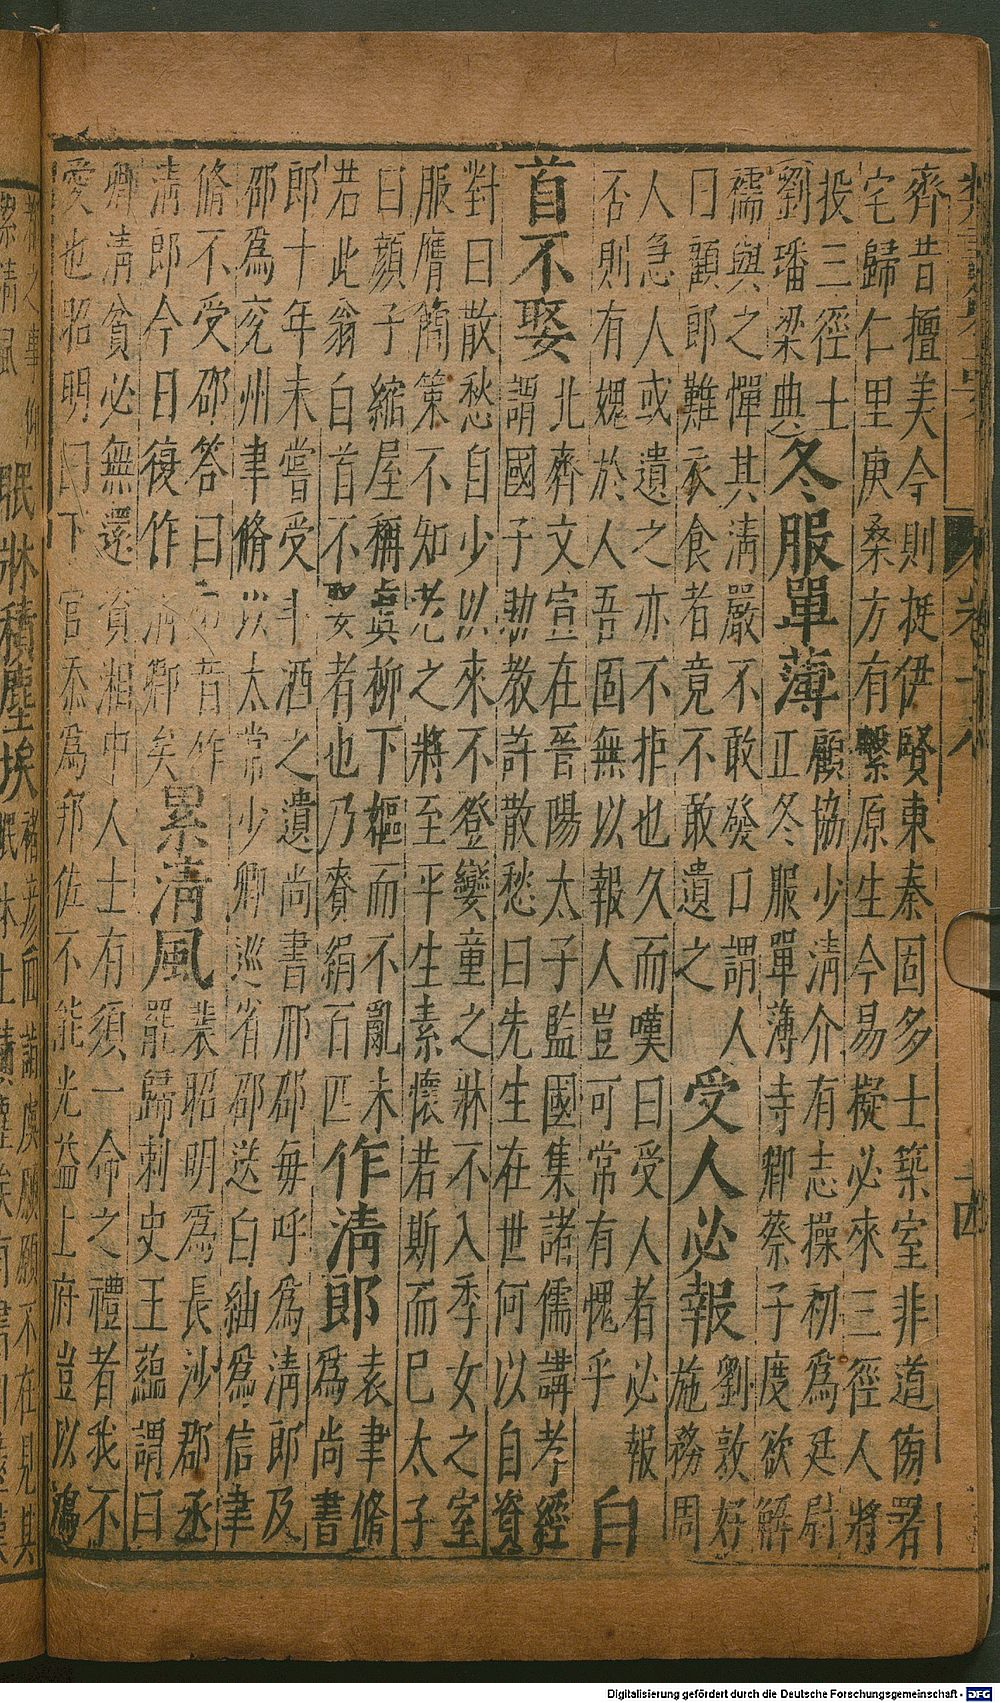 齊昔擅美今則挺伊賢東秦固多士築室非道傍署
宅歸仁里庚桑方有繫原生今易擬必來三徑人將
投三徑士
劉璠梁典
冬服單薄
顧協少清介有志操初為廷尉
正冬服單薄寺卿蔡子度欲解
襦與之憚其清嚴不敢發口謂人
曰顧郎難衣食者竟不敢遺之
受人必報
劉敦好
施務周
人急人或遺之亦不拒也久而嘆曰受人者必報
否則有媿於人吾固無以報人豈可常有愧乎
白
首不娶
北齊文宣在晉陽太子監國集諸儒講孝經
謂國子助教許散愁曰先生在世何以自資
對曰散愁自少以來不登孌童之牀不入季女之室
服膺簡策不知老之將至平生素懷若斯而已太子
曰顏子縮屋稱眞柳下嫗而不亂未
若此翁白首不娶者也乃賚絹百匹
作清郎
袁聿脩
為尚書
郎十年未嘗受升酒之遺尚書邢邵每呼為清郎及
邵為兗州聿脩以太常少卿巡省邵送白紬為信聿
脩不受邵答曰 昔作
清郎今日復作清卿矣
累清風
裴昭明為長沙郡丞
罷歸刺史王蘊謂曰
卿清貧必無還資湘中人士有須一命之禮者我不
愛也昭明曰下官忝為邦佐不能光益上府豈以鴻
眠牀積塵埃